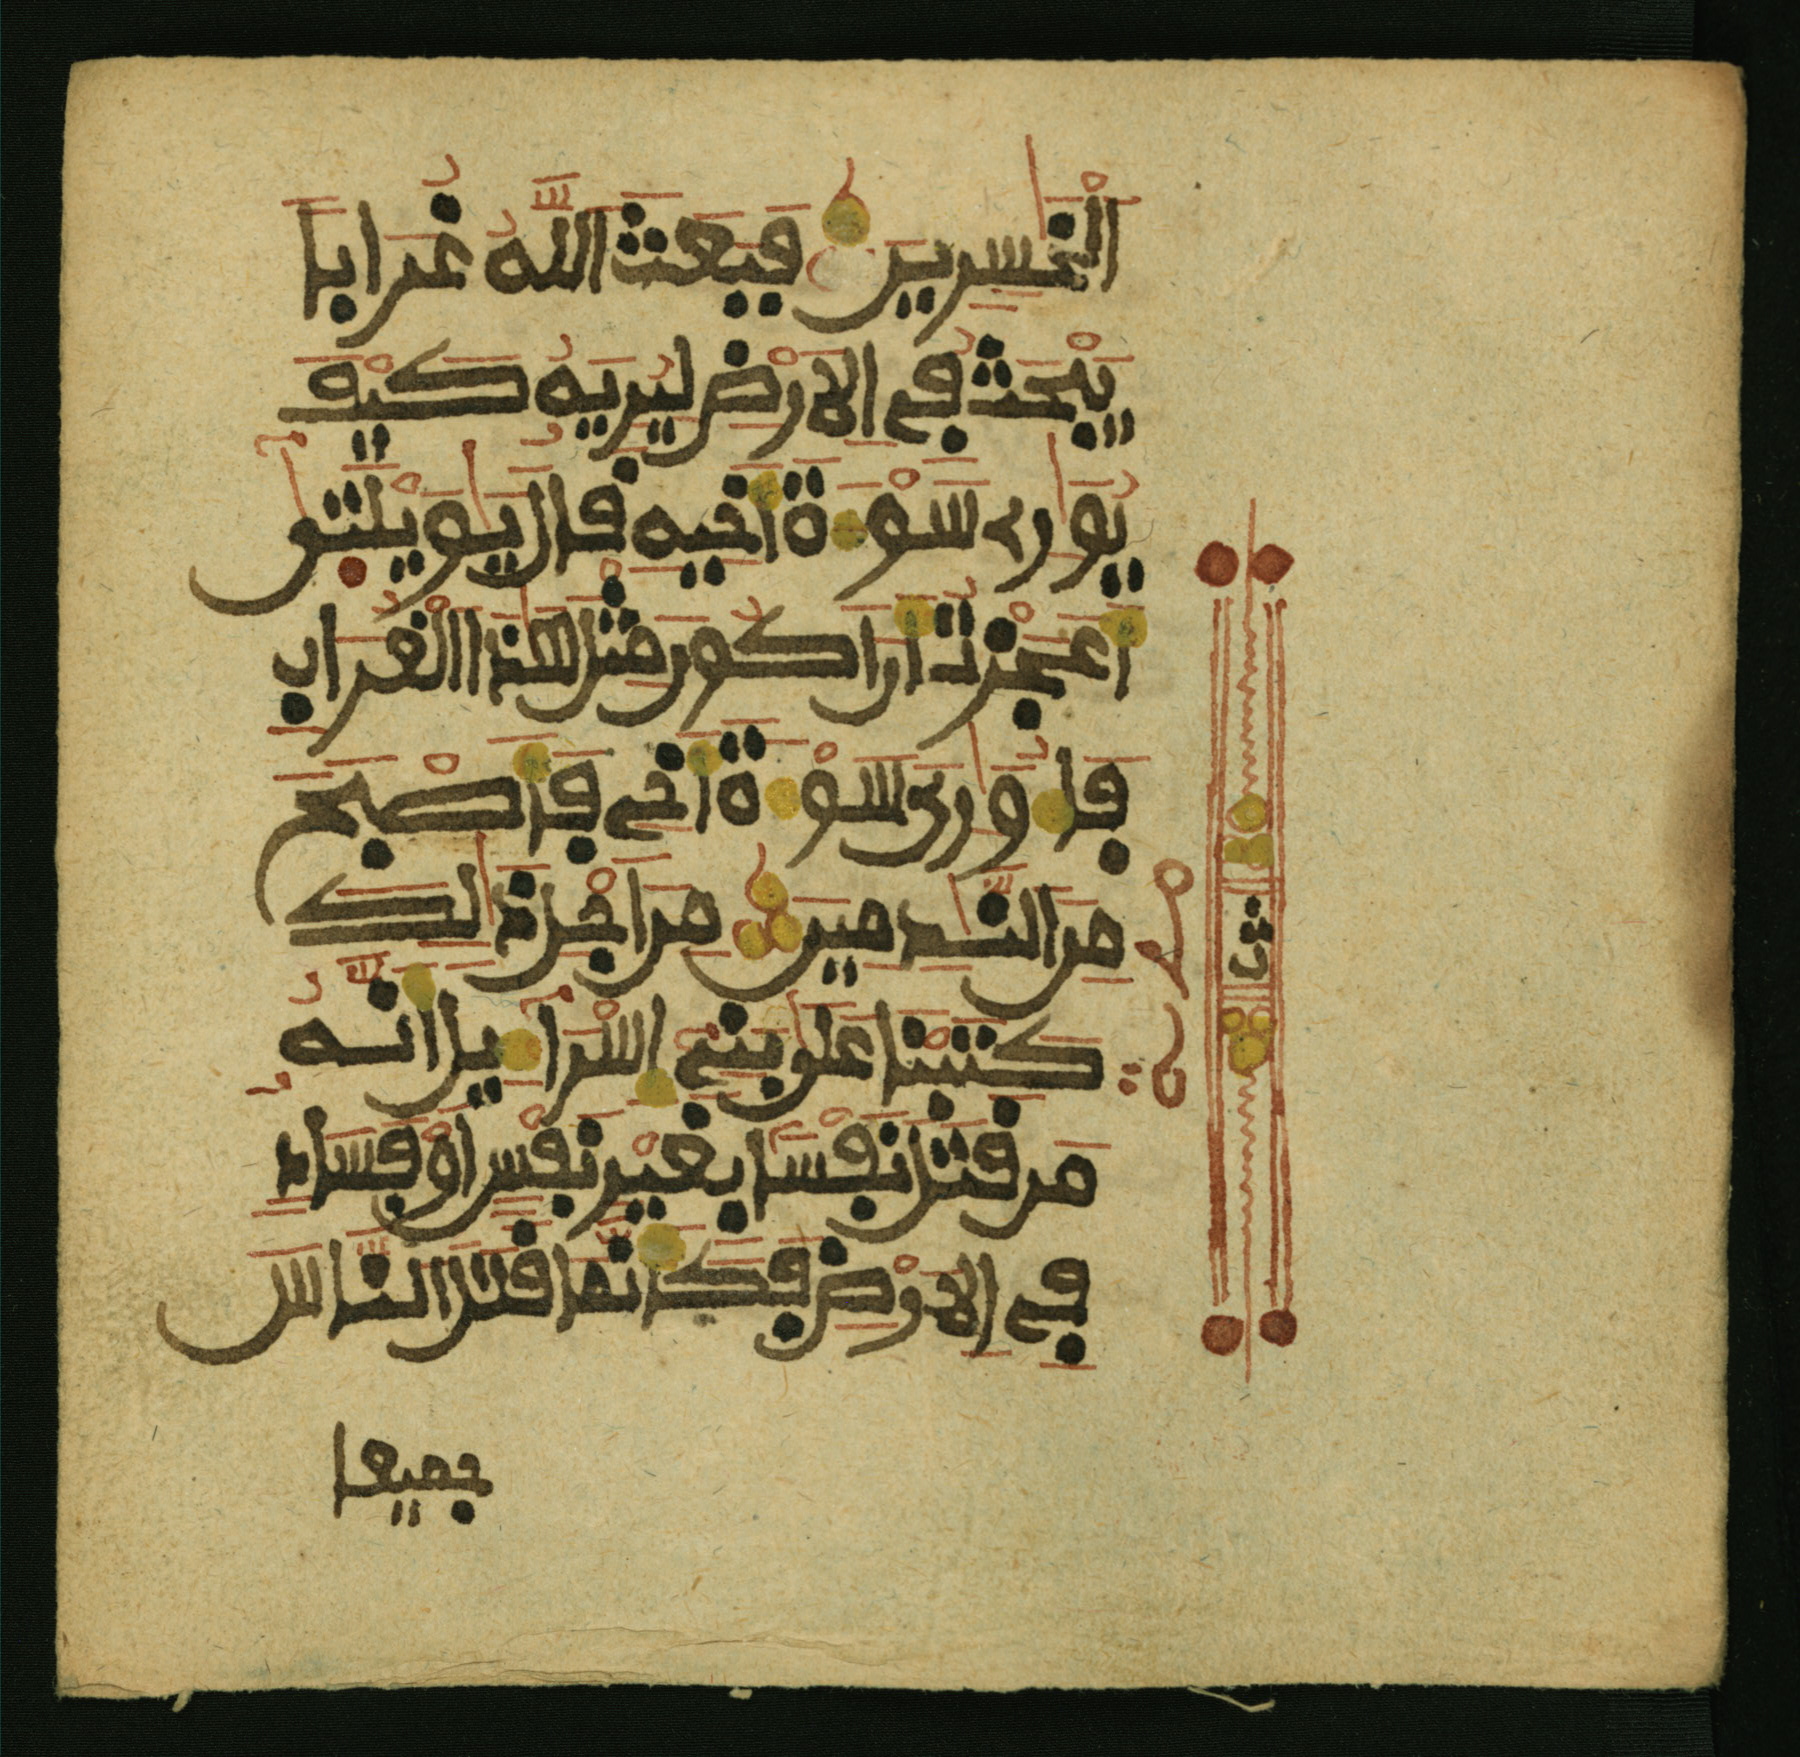 الْخٰسِرِينَ فَبَعَثَ اللَّهُ غُرَابًا
يَبْحَثُ فِي الَارْضِ لِيُرِيَهُ كَيْفَ
يُوَارِي سَوْءَةَ أَخِيهِ قَالَ يَاوَيْلَتَىٰ
أَعَجَزْتُ أَنَ اَكُونَ مِثْلَ هَٰذَا الْغُرَابِ
فَأُوَٰرِيَ سَوْءَةَ أَخِي فَأَصْبَحَ
مِنَ النَّٰدِمِينَ مِنَ اَجْلِ ذَٰلِكَ
كَتَبْنَا عَلَىٰ بَنِي إِسْرَآءِيلَ أَنَّهُ
مَن قَتَلَ نَفْسًا بِغَيْرِ نَفْسٍ اَوْ فَسَادٍ
فِي الَارْضِ فَكَأَنَّمَا قَتَلَ النَّاسَ
جميعا
ثمن